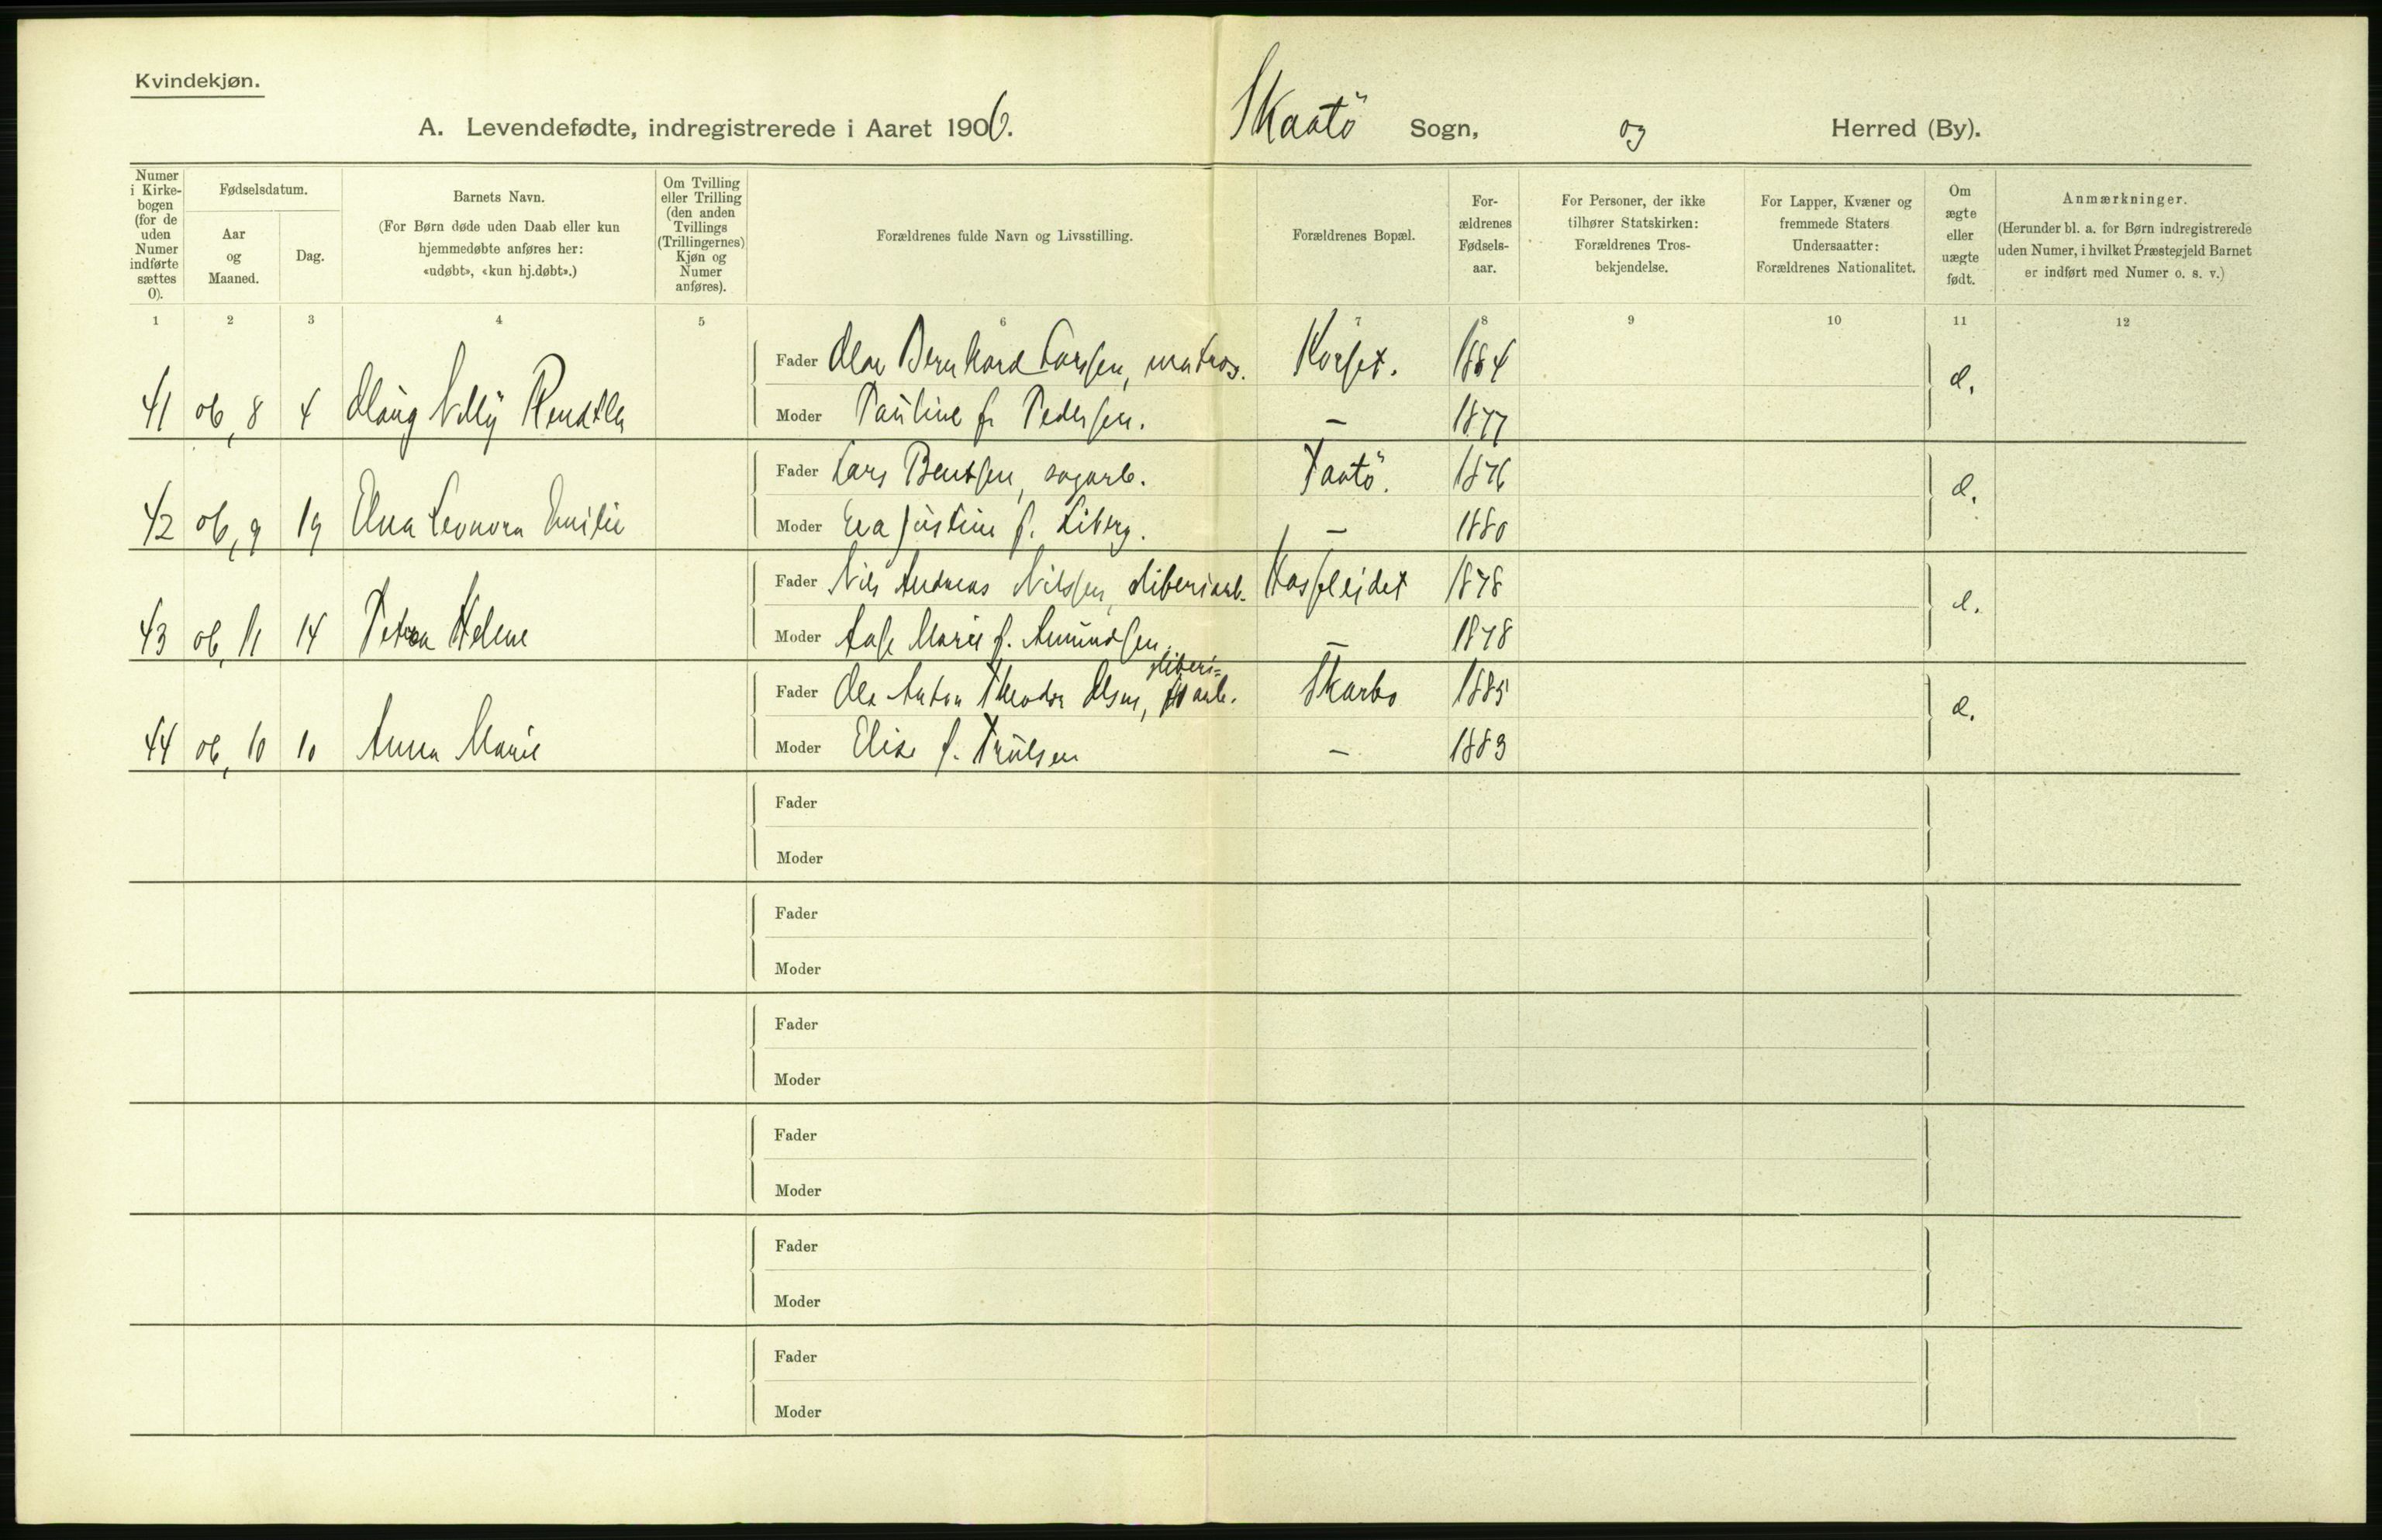 Kvindekjøn.
A. Levendefødte, indregistrerede i Aaret 1906. Skaatö Sogn, og Herred (By).
Numer i Kirkebogen (for de uden Numer indførte sættes 0).
Fødselsdatum.
Aar og Maaned.
Dag.
Barnets Navn.
(For Børn døde uden Daab eller kun hjemmedøbte anføres her: «udøbt», «kun hj.døbt».)
Om Tvilling eller Trilling (den anden Tvillings (Trillingernes) Kjøn og Numer anføres).
Forældrenes fulde Navn og Livsstilling.
Forældrenes Bopæl.
Forældrenes Fødselsaar.
For Personer, der ikke tilhører Statskirken: Forældrenes Trosbekjendelse.
For Lapper, Kvæner og fremmede Staters Undersaatter: Forældrenes Nationalitet.
Om ægte eller uægte født.
Anmærkninger.
(Herunder bl. a. for Børn indregistrerede uden Numer, i hvilket Præstegjeld Barnet er indført med Numer o. s. v.)
1 2 3 4 5 6 7 8 9 10 11 12
Fader Olav Bernhard Larsen, matros. Korset. 1884
41 06, 8 4 Nelly Moder Pauline f. Pedersen. — 1877
Fader Lars Bentsen, sagarb. Taatö. 1876
42 06, 9 19 Elna Leonora Emilie Moder Eva Justine f. Liberg. — 1880
Fader Nils Andreas Nilssen, sliberiarb. 1878
43 06, 11 14 Petra Helene Moder Aase Marie f. Amundsen. — 1878
sliberi=
Fader Ole Anton Theodor Olsen, arb. Skarbo 1885
44 06, 10 10 Anna Marie Moder Elise f. Trulsen — 1883
Fader
Moder
Fader
Moder
Fader
Moder
Fader
Moder
Fader
Moder
Fader
Moder